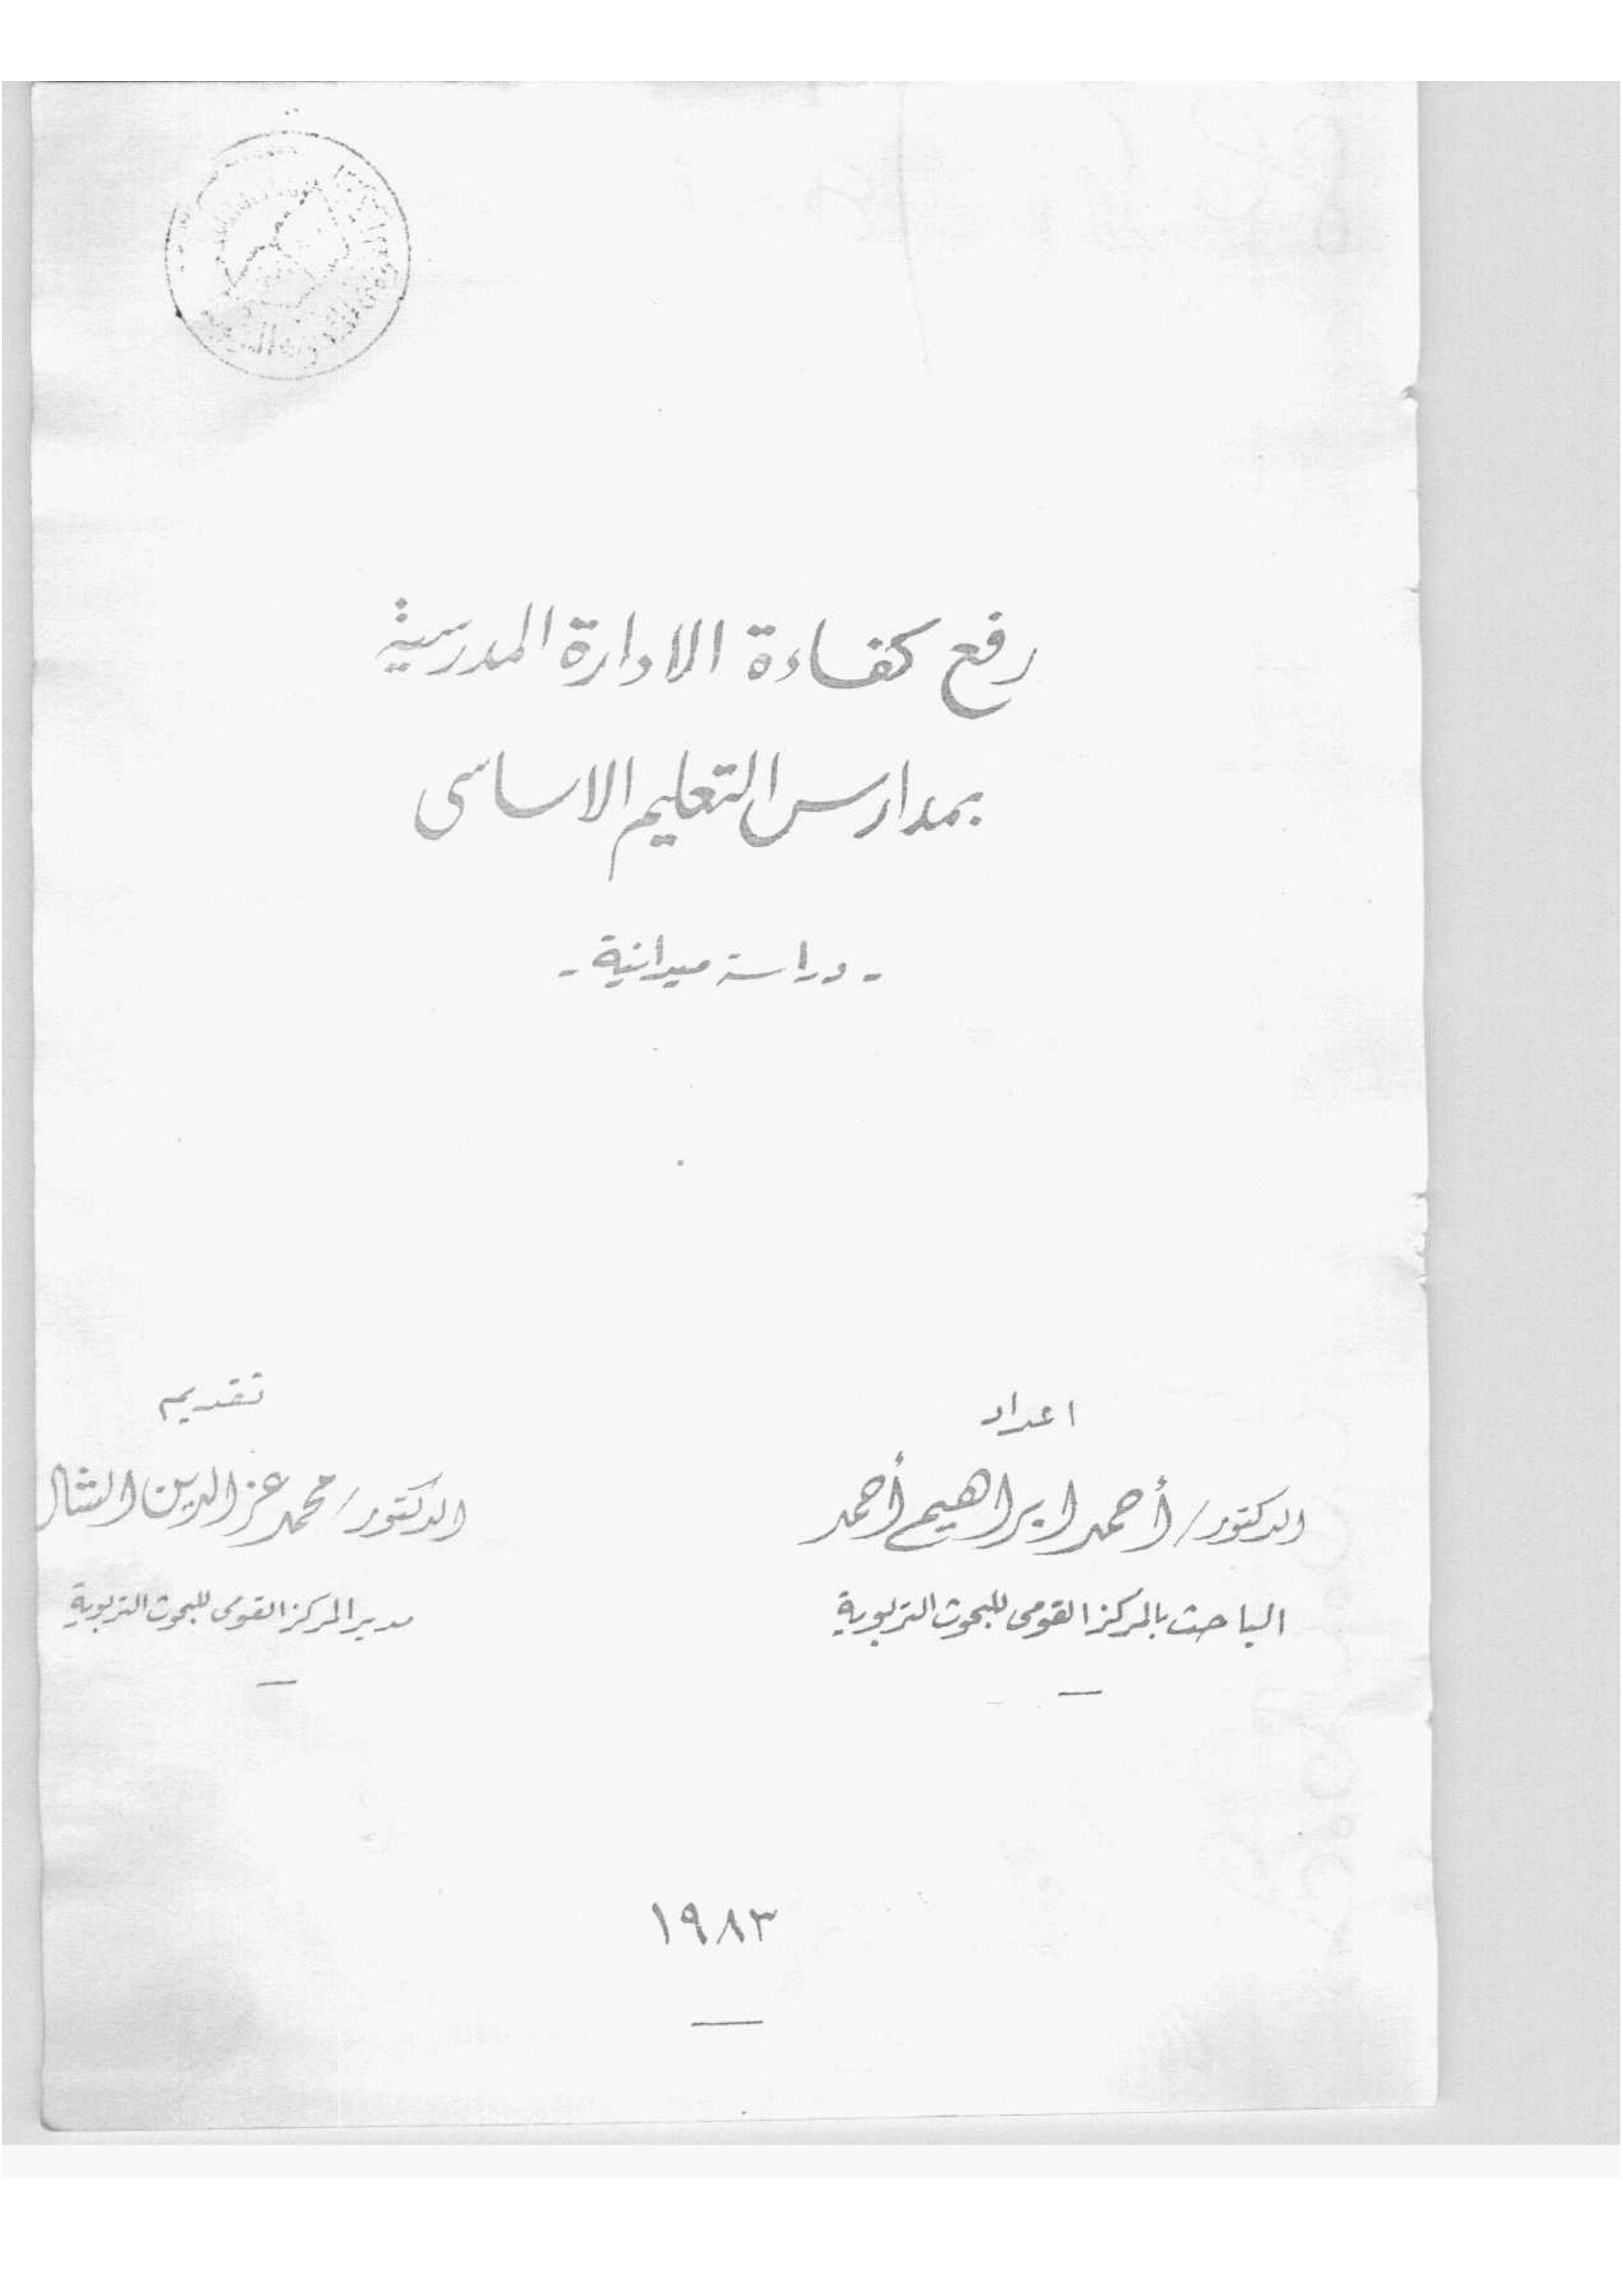 رفع كفاءة الادارة المدرسية
بمدارس التعليم الاساسى
- دراسة ميدانية -
اعداد
الدكتور/ أحمد ابراهيم أحمد
الباحث بالمركز القومى للبحوث التربوية
تقديم
الدكتور/ محمد عز الدين الشال
مدير المركز القومى للبحوث التربوية
١٩٨٣